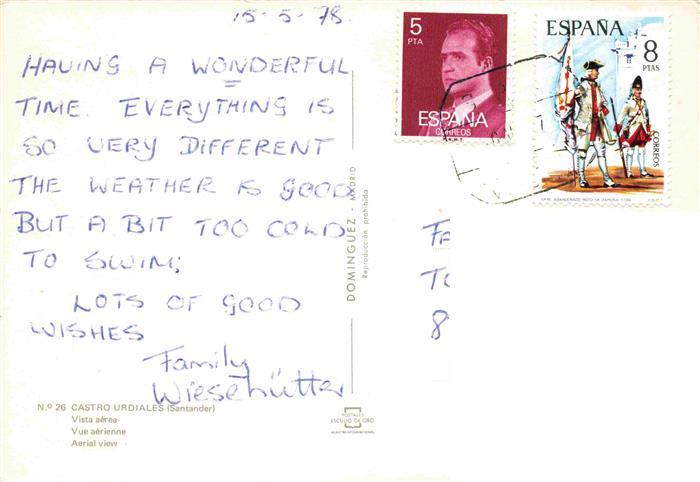 15-5-78
HAVING A WONDERFUL
TIME. EVERYTHING IS
SO VERY DIFFERENT
THE WEATHER IS GOOD
BUT A BIT TOO COLD
TO SWIM;
LOTS OF GOOD
WISHES
Family
Wiesehütter
N.º 26 CASTRO URDIALES (Santander)
Vista aérea
Vue aérienne
Aerial view
DOMINGUEZ - MADRID
Reproducción prohibida
POSTALES
ESCUDO DE ORO
5
PTA
ESPAÑA
CORREOS
F.N.M.T.
ESPAÑA
8
PTAS
CORREOS
FA
TO
8